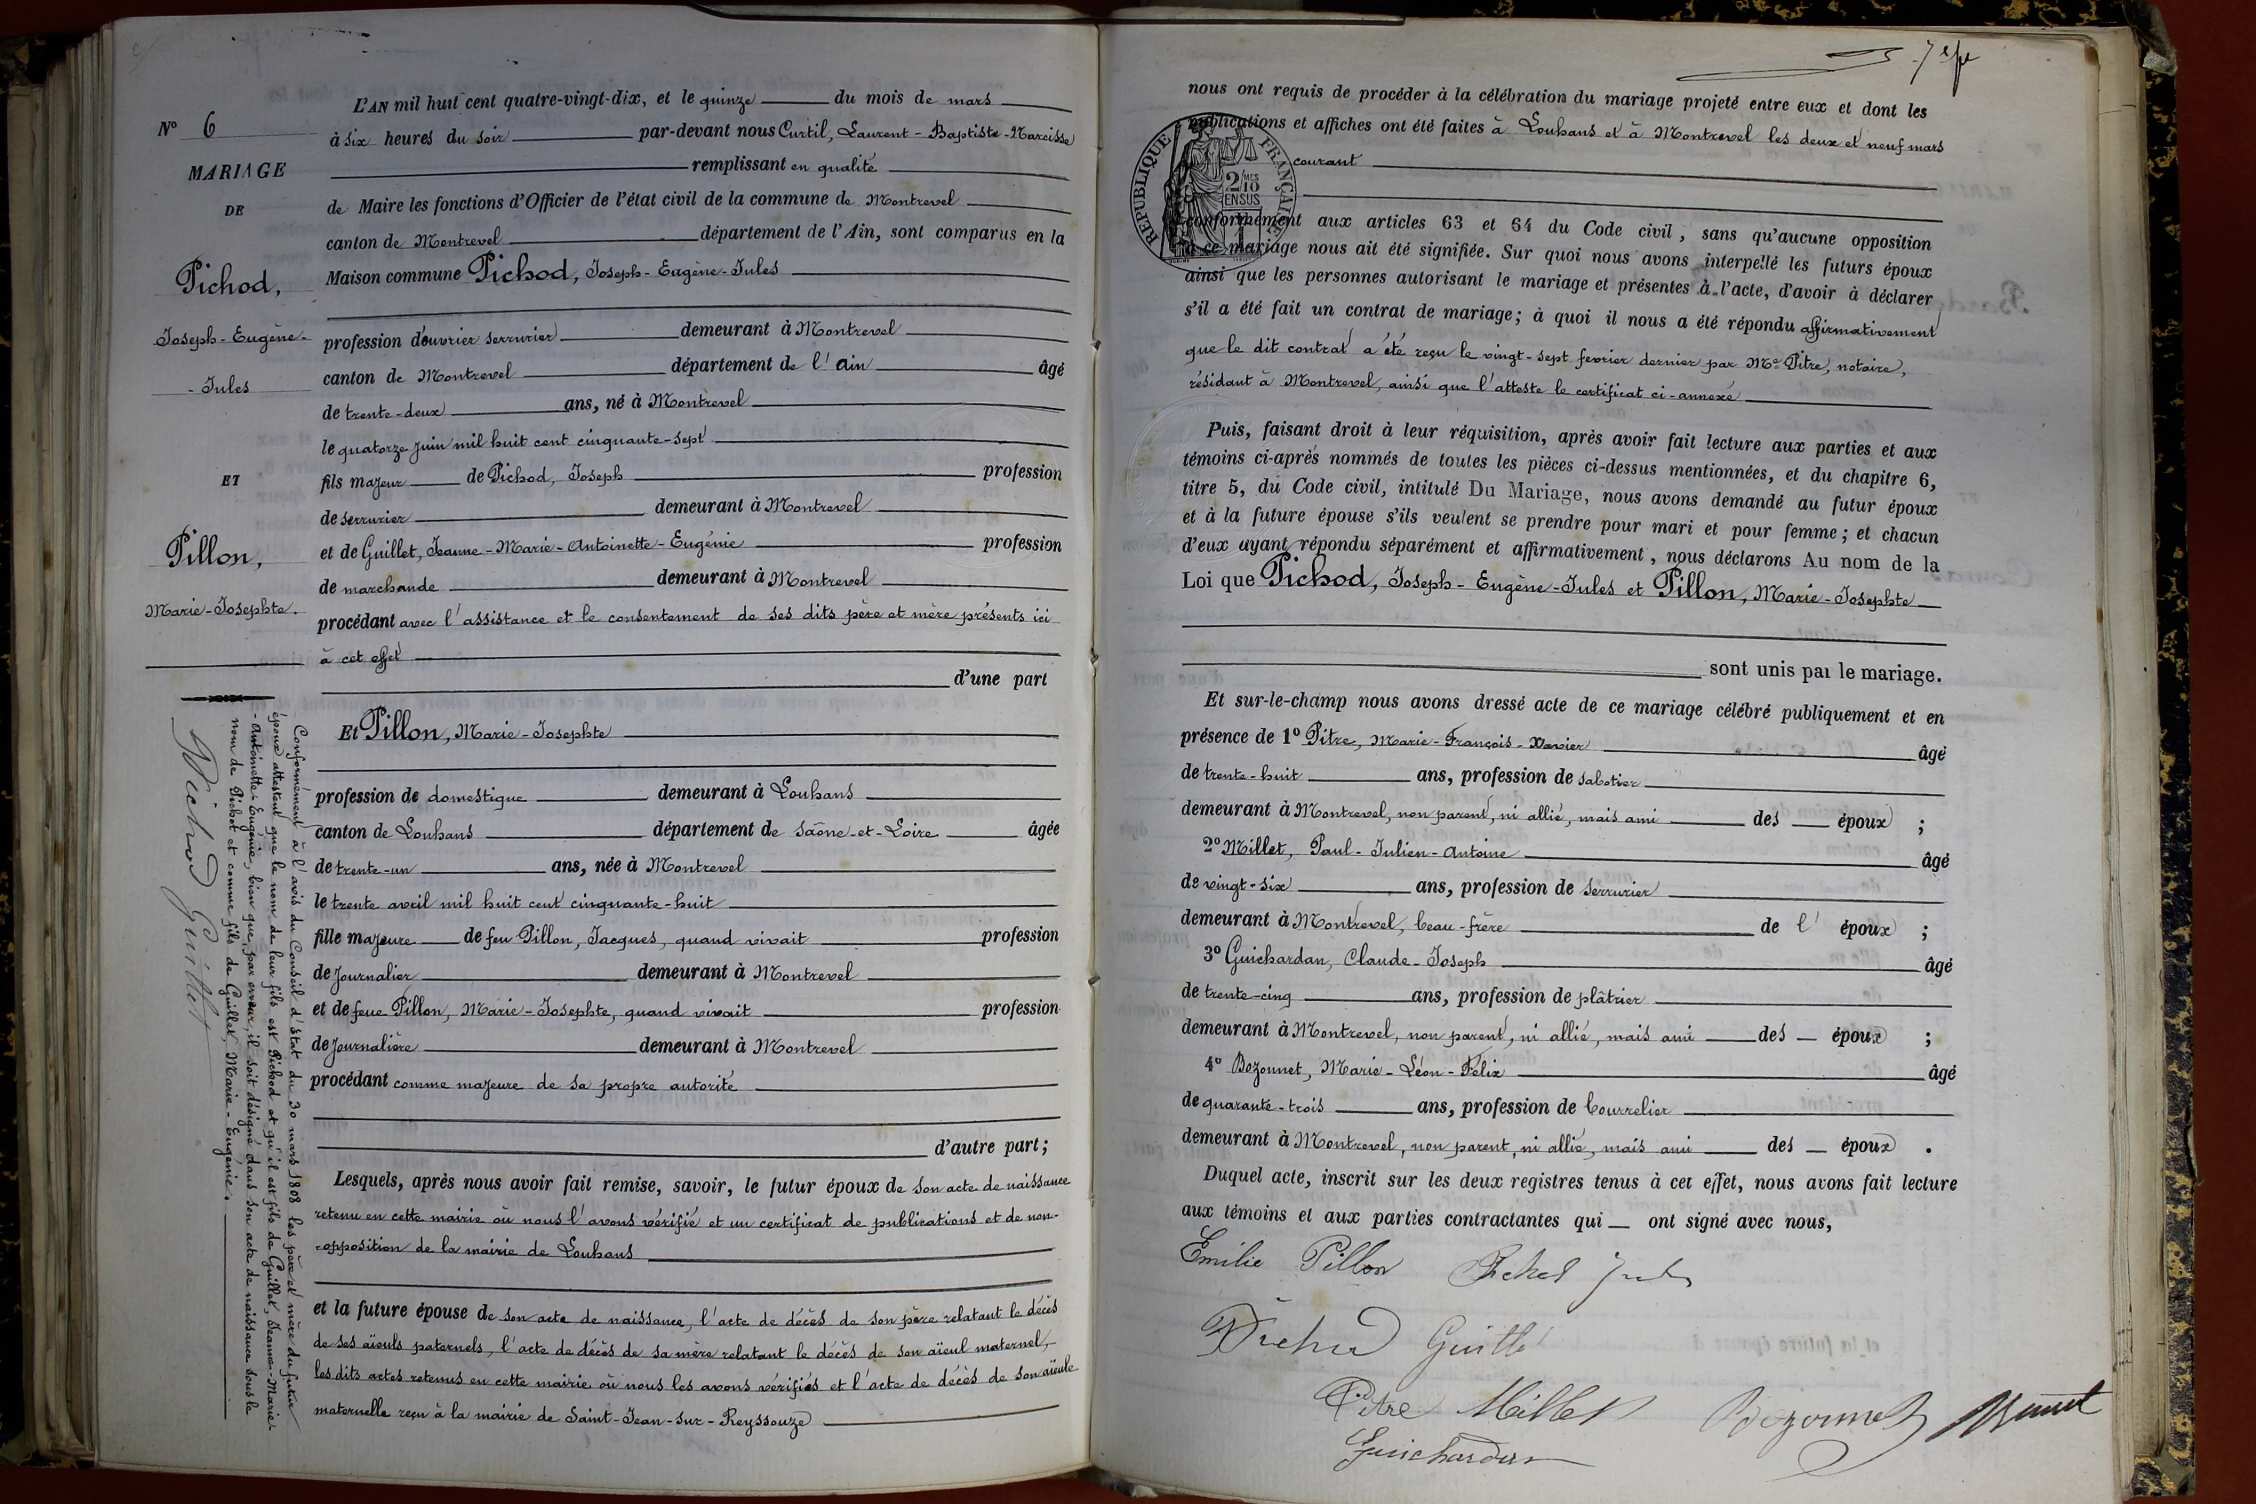 L'AN mil huit cent quatre-vingt-dix, et le quinze du mois de mars
Nº 6
à six heures du soir par-devant nous Curtil, Laurent-Baptiste-Narcisse
remplissant en qualité
MARIAGE
DE
de Maire les fonctions d'Officier de l'état civil de la commune de Montrevel
canton de Montrevel département de l'Ain, sont comparus en la
Pichod,
Joseph-Eugène-
-Jules
Maison commune Pichod, Joseph-Eugène-Jules
profession d'ouvrier serrurier demeurant à Montrevel
canton de Montrevel département de l'Ain âgé
de trente-deux ans, né à Montrevel
le quatorze juin mil huit cent cinquante-sept
ET
fils majeur de Pichod, Joseph profession
de serrurier demeurant à Montrevel
Pillon,
Marie-Josephte.
et de Guillet, Jeanne-Marie-Antoinette-Eugénie profession
de marchande demeurant à Montrevel
procédant avec l'assistance et le consentement de ses dits père et mère présents ici
à cet effet
d'une part
Et Pillon, Marie-Josephte
profession de domestique demeurant à Louhans
canton de Louhans département de Saône-et-Loire âgée
de trente-un ans, née à Montrevel
le trente avril mil huit cent cinquante-huit
fille majeure de feu Pillon, Jacques, quand vivait profession
de journalier demeurant à Montrevel
et de feue Pillon, Marie-Josephte, quand vivait profession
de journalière demeurant à Montrevel
procédant comme majeure de sa propre autorité
d'autre part;
Lesquels, après nous avoir fait remise, savoir, le futur époux de son acte de naissance
retenu en cette mairie où nous l'avons vérifié et un certificat de publications et de non-
-opposition de la mairie de Louhans
et la future épouse de son acte de naissance, l'acte de décès de son père relatant le décès
de ses aïeuls paternels, l'acte de décès de sa mère relatant le décès de son aïeul maternel,
les dits actes retenus en cette mairie où nous les avons vérifiés et l'acte de décès de son aïeule
maternelle reçu à la mairie de Saint-Jean-sur-Reyssouze
Conformément à l'avis du Conseil d'état du 30 mars 1808 les père et mère du futur
époux attestent que le nom de leur fils est Pichod et qu'il est fils de Guillet, Jeanne-Marie-
-Antoinette-Eugénie, bien que, par erreur, il soit désigné dans son acte de naissance sous le
nom de Pichot et comme fils de Guillet, Marie-Eugénie.
Pichod Guillet
nous ont requis de procéder à la célébration du mariage projeté entre eux et dont les
publications et affiches ont été faites à Louhans et à Montrevel les deux et neuf mars
courant
RÉPUBLIQUE FRANÇAISE
2 MES
10
EN SUS
conformément aux articles 63 et 64 du Code civil, sans qu'aucune opposition
à ce mariage nous ait été signifiée. Sur quoi nous avons interpellé les futurs époux
ainsi que les personnes autorisant le mariage et présentes à l'acte, d'avoir à déclarer
s'il a été fait un contrat de mariage; à quoi il nous a été répondu affirmativement
que le dit contrat a été reçu le vingt-sept fevrier dernier par Me Pitre, notaire,
résidant à Montrevel, ainsi que l'atteste le certificat ci-annexé
Puis, faisant droit à leur réquisition, après avoir fait lecture aux parties et aux
témoins ci-après nommés de toutes les pièces ci-dessus mentionnées, et du chapitre 6,
titre 5, du Code civil, intitulé Du Mariage, nous avons demandé au futur époux
et à la future épouse s'ils veulent se prendre pour mari et pour femme; et chacun
d'eux ayant répondu séparément et affirmativement, nous déclarons Au nom de la
Loi que Pichod, Joseph-Eugène-Jules et Pillon, Marie-Josephte
sont unis par le mariage.
Et sur-le-champ nous avons dressé acte de ce mariage célébré publiquement et en
présence de 1º Pitre, Marie-François-Xavier âgé
de trente-huit ans, profession de sabotier
demeurant à Montrevel, non parent, ni allié, mais ami des époux;
2º Millet, Paul-Julien-Antoine âgé
de vingt-six ans, profession de serrurier
demeurant à Montrevel, beau-frère de l'époux;
3º Guichardan, Claude-Joseph âgé
de trente-cinq ans, profession de plâtrier
demeurant à Montrevel, non parent, ni allié, mais ami des époux;
4º Bozonnet, Marie-Léon-Félix âgé
de quarante-trois ans, profession de bourrelier
demeurant à Montrevel, non parent, ni allié, mais ami des époux.
Duquel acte, inscrit sur les deux registres tenus à cet effet, nous avons fait lecture
aux témoins et aux parties contractantes qui ont signé avec nous,
Emilie Pillon
Pichod Guillet
Pitre Millet Bozonnet
Guichardan